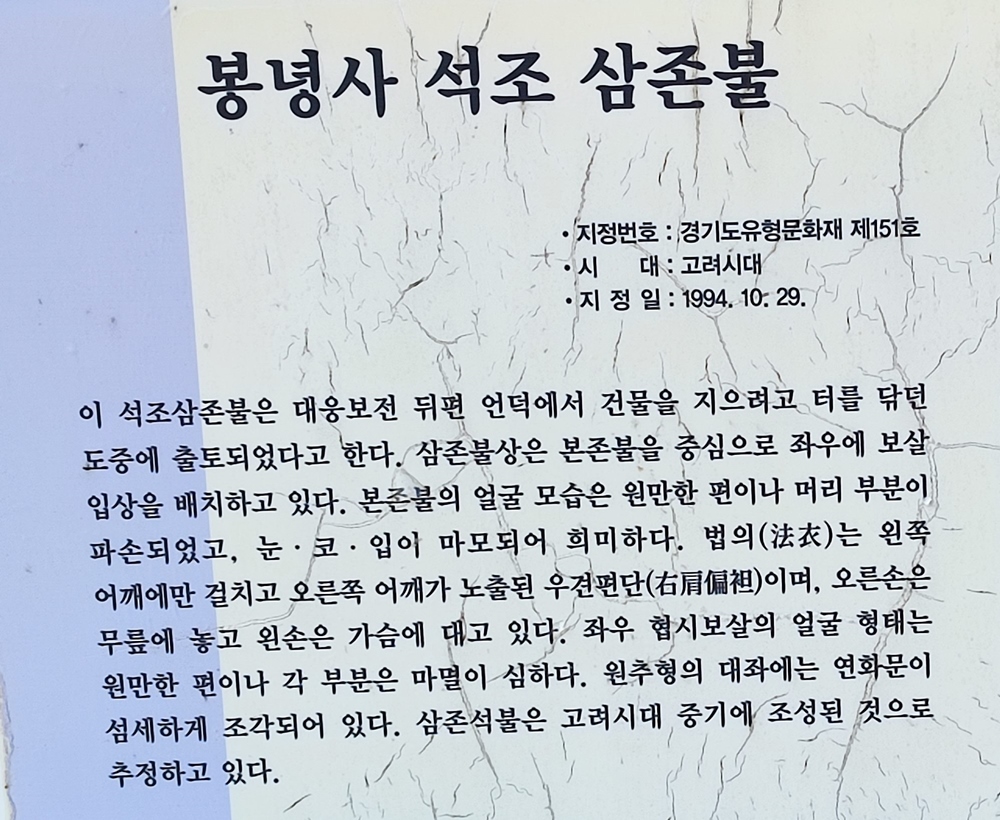 봉녕사 석조 삼존불
• 지정번호 : 경기도유형문화재 제151호
• 시 대 : 고려시대
• 지 정 일 : 1994. 10. 29.
이 석조삼존불은 대웅보전 뒤편 언덕에서 건물을 지으려고 터를 닦던
도중에 출토되었다고 한다. 삼존불상은 본존불을 중심으로 좌우에 보살
입상을 배치하고 있다. 본존불의 얼굴 모습은 원만한 편이나 머리 부분이
파손되었고, 눈 · 코 · 입이 마모되어 희미하다. 법의(法衣)는 왼쪽
어깨에만 걸치고 오른쪽 어깨가 노출된 우견편단(右肩偏袒)이며, 오른손은
무릎에 놓고 왼손은 가슴에 대고 있다. 좌우 협시보살의 얼굴 형태는
원만한 편이나 각 부분은 마멸이 심하다. 원추형의 대좌에는 연화문이
섬세하게 조각되어 있다. 삼존석불은 고려시대 중기에 조성된 것으로
추정하고 있다.